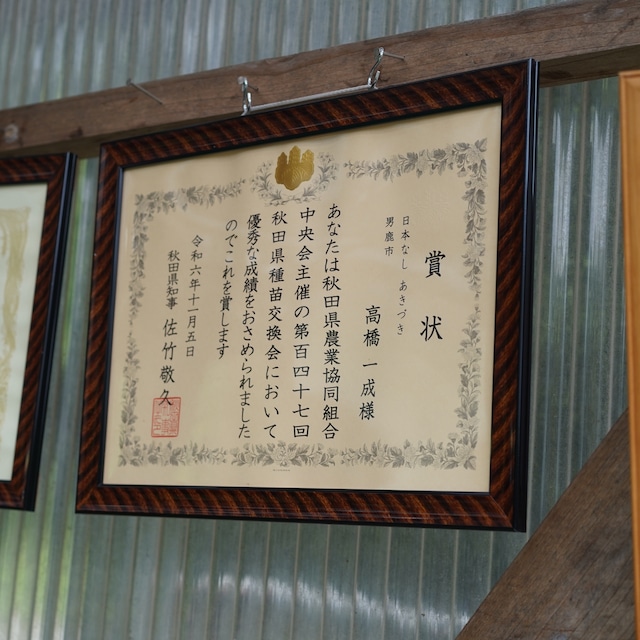 賞状
日本なし あきづき
男鹿市
高橋 一成様
あなたは秋田県農業協同組合
中央会主催の第百四十七回
秋田県種苗交換会において
優秀な成績をおさめられました
のでこれを賞します
令和六年十一月五日
秋田県知事 佐竹敬久